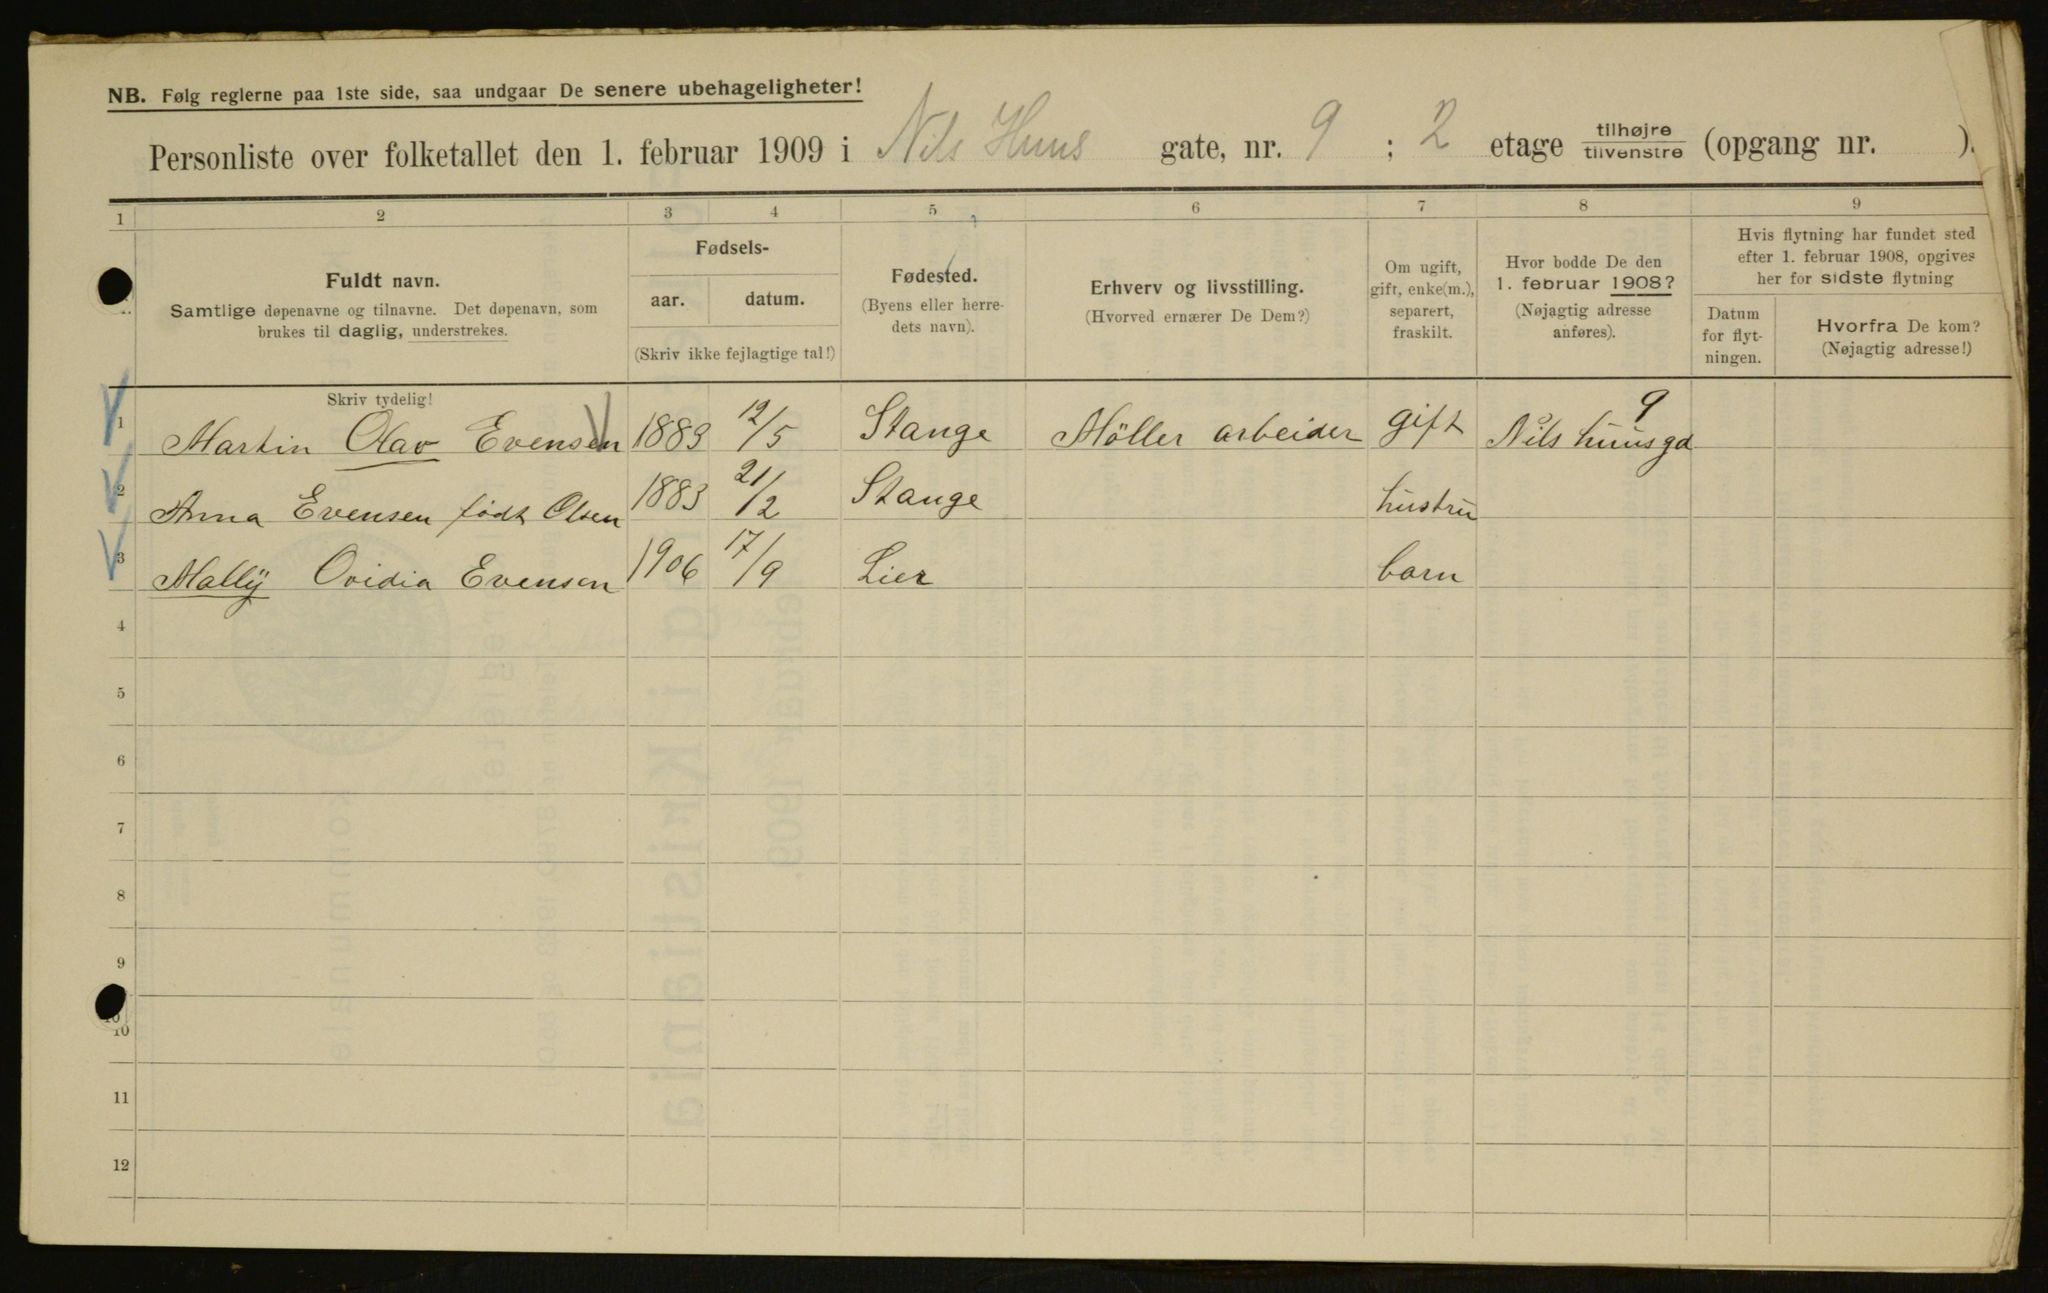 NB. Følg reglerne paa 1ste side, saa undgaar De senere ubehageligheter!
Personliste over folketallet den 1. februar 1909 i Nils Huus gate, nr. 9 ; 2 etage tilhøjre/tilvenstre (opgang nr. ).
1 2 3 4 5 6 7 8 9
Fuldt navn.
Samtlige døpenavne og tilnavne. Det døpenavn, som
brukes til daglig, understrekes.
Fødsels-
aar. datum.
(Skriv ikke fejlagtige tal!)
Fødested.
(Byens eller herre-
dets navn).
Erhverv og livsstilling.
(Hvorved ernærer De Dem?)
Om ugift,
gift, enke(m.),
separert,
fraskilt.
Hvor bodde De den
1. februar 1908?
(Nøjagtig adresse
anføres).
Hvis flytning har fundet sted
efter 1. februar 1908, opgives
her for sidste flytning
Datum
for flyt-
ningen.
Hvorfra De kom?
(Nøjagtig adresse!)
Skriv tydelig!
1 Martin Olav Evensen 1883 12/5 Stange Möller arbeider gift Nils huusgd 9
2 Anna Evensen født Olsen 1883 21/2 Stange hustru
3 Mallÿ Ovidia Evensen 1906 17/9 Lier barn
4
5
6
7
8
9
10
10
11
12